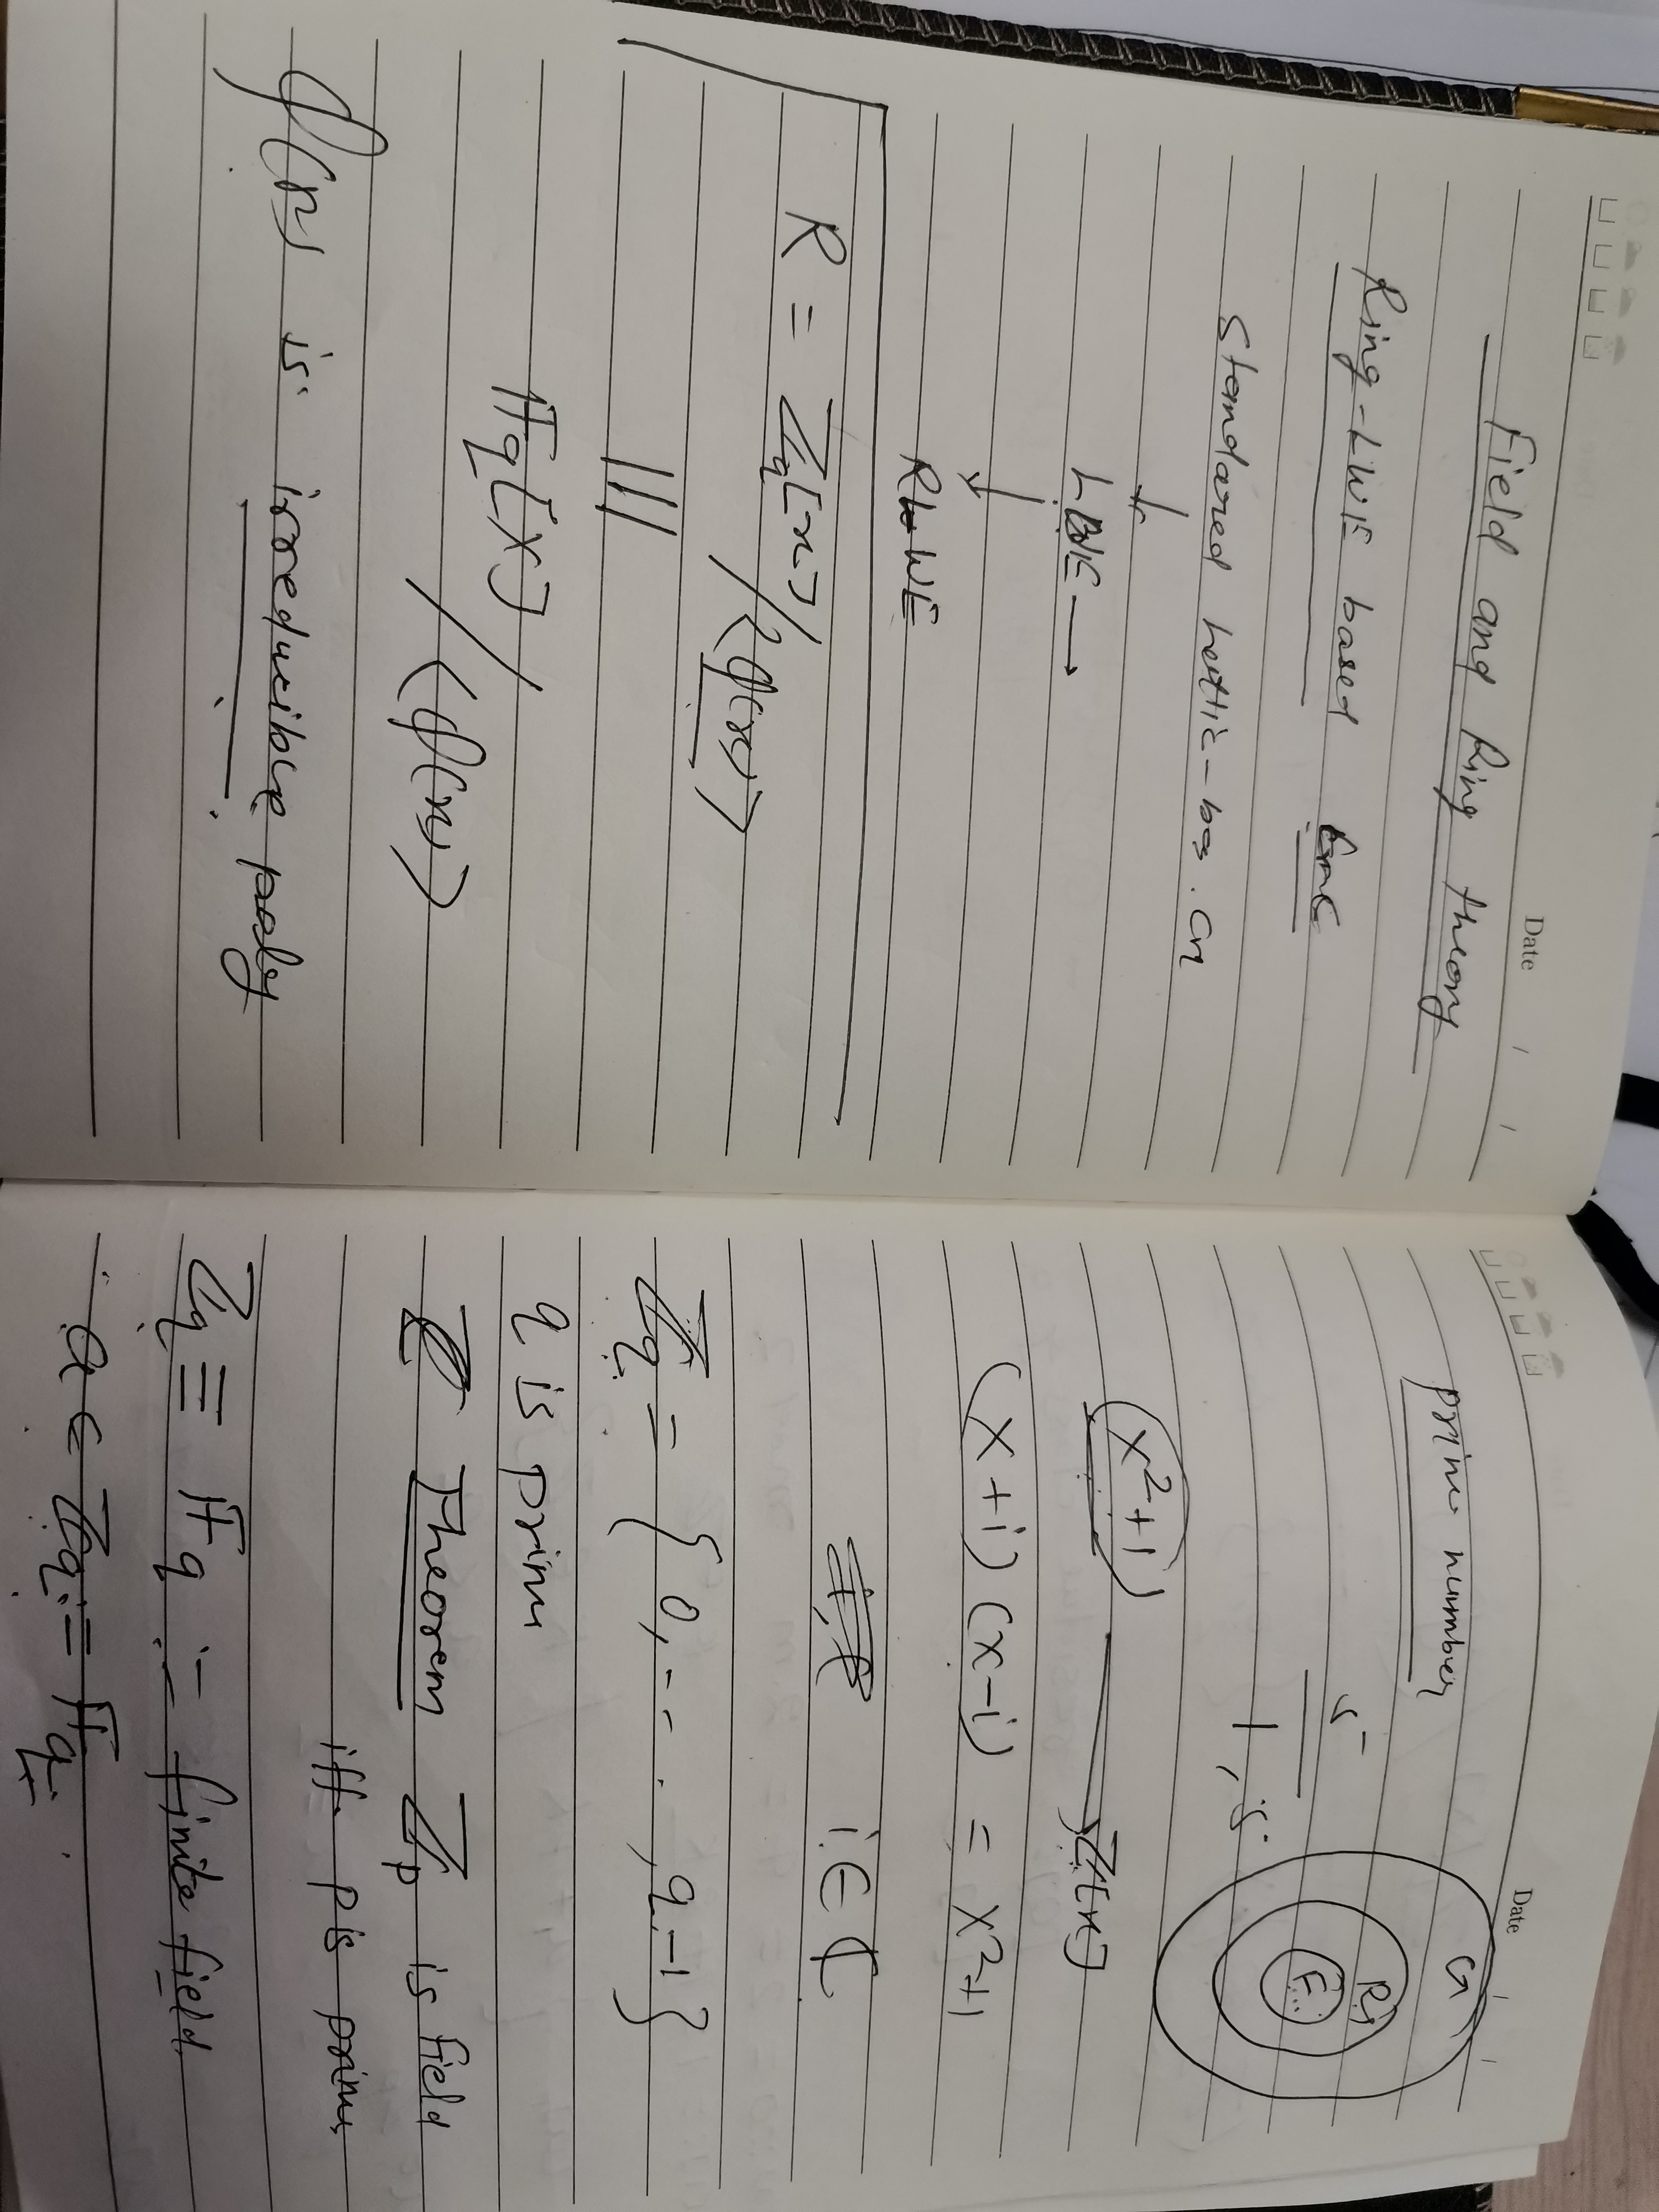 Date / /
Field and Ring theory
Ring-LWE based Enc
Standared Lattic-bas. Cry
↓
LWE →
↓
RLWE
R = ℤq[x]/<φ(x)>
|||
𝔽q[X]/<φ(x)>
φ(x) is irreducible poly
Date / /
prime number
G
R
F
5
1, 5
x²+1 → ℤ[x]
(x+i) (x-i) = x²+1
i ∈ ℂ
ℤq = { 0, -- . , q-1}
q is prime
Theorem ℤp is field
iff p is prime
ℤq ≡ 𝔽q := finite field
a ∈ ℤq := 𝔽q